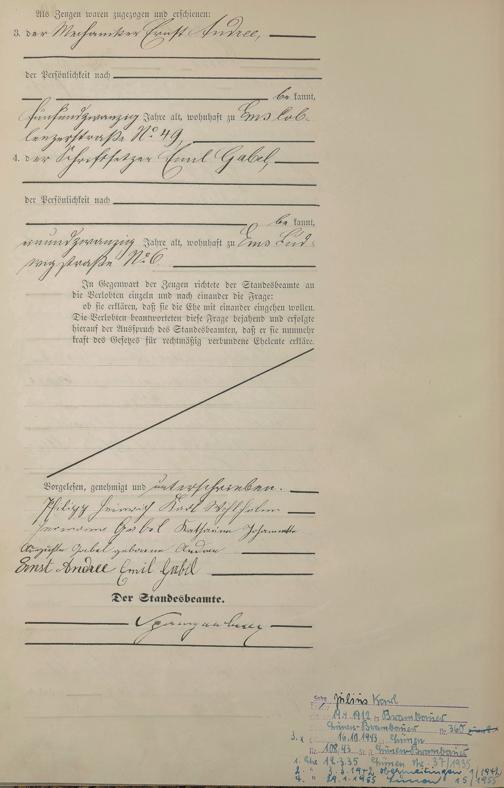 Als Zeugen waren zugezogen und erschienen:
3. der Mechaniker Ernst Andree,
der Persönlichkeit nach
be kannt,
fünfundzwanzig Jahre alt, wohnhaft zu Ems Cob-
lenzerstraße No 49,
4. der Schriftsetzer Emil Gabel,
der Persönlichkeit nach
be kannt,
neunundzwanzig Jahre alt, wohnhaft zu Ems Lud-
wigstraße No 6.
In Gegenwart der Zeugen richtete der Standesbeamte an
die Verlobten einzeln und nach einander die Frage:
ob sie erklären, daß sie die Ehe mit einander eingehen wollen.
Die Verlobten beantworteten diese Frage bejahend und erfolgte
hierauf der Ausspruch des Standesbeamten, daß er sie nunmehr
kraft des Gesetzes für rechtmäßig verbundene Eheleute erkläre.
Vorgelesen, genehmigt und unterschrieben.
Philipp Heinrich Karl
Hermann Gabel Katharina Johannette
Auguste Gabel geborene Andree
Ernst Andree Emil Gabel
Der Standesbeamte.
Julius Karl
19.4.1912 Brambauer
Lünen-Brambauer Nr. 360
3. 16.10.1943 Lünen
Nr. 108/43 Lünen-Brambauer
1. Ehe 12.3.35 Lünen Nr. 37/1935
2. " 1/1942
4. " 29.1.1955 Lünen 15/1955